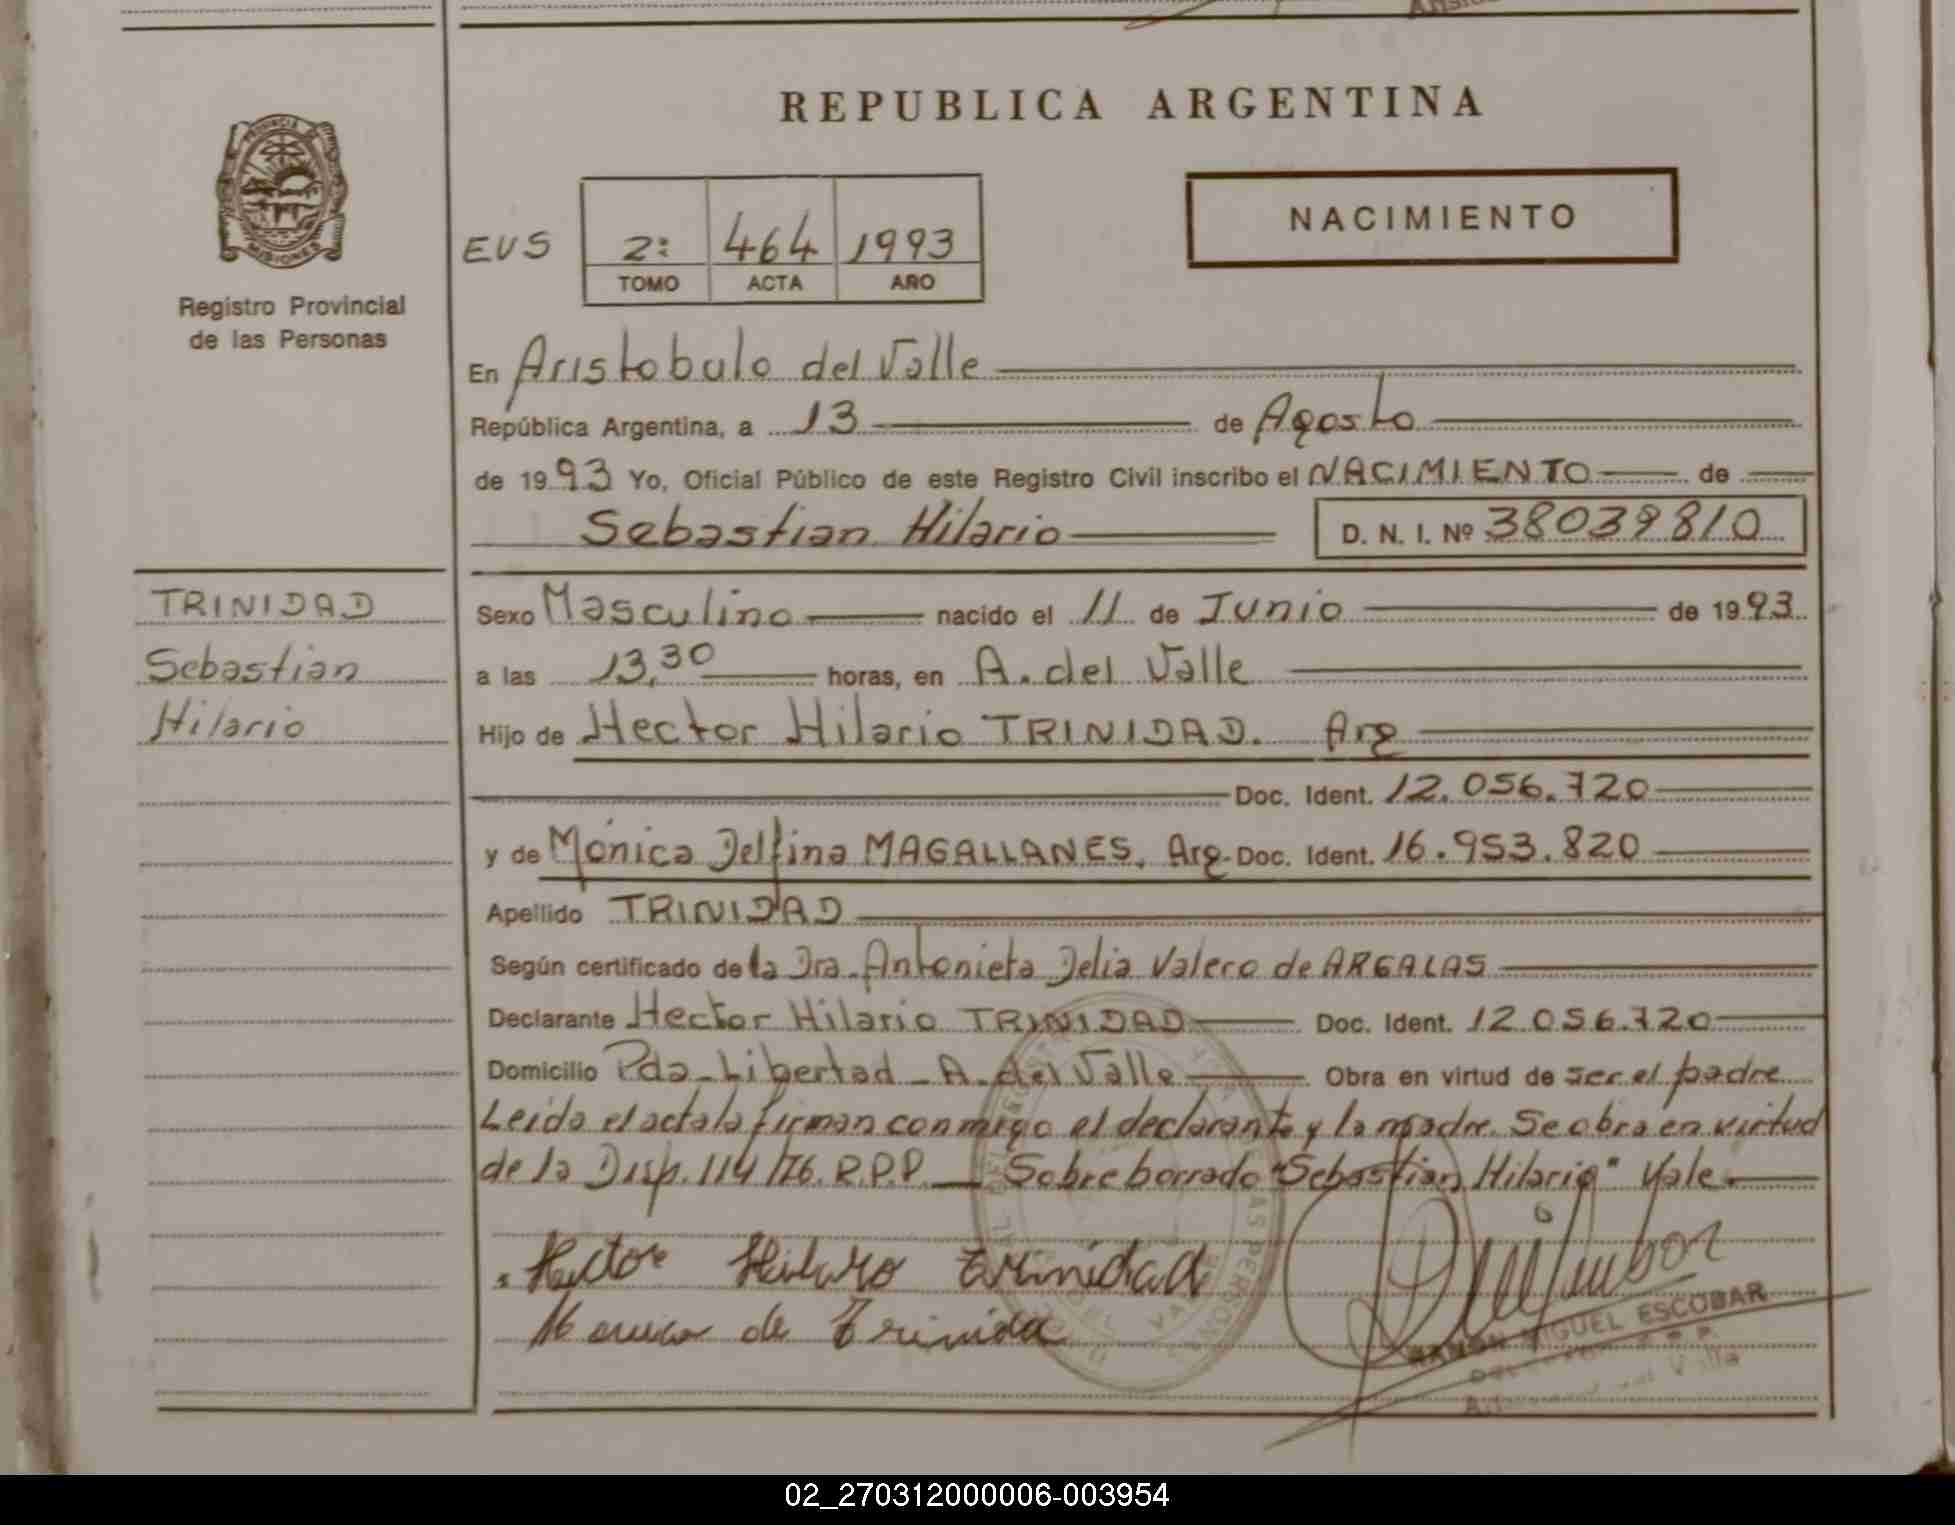 REPUBLICA ARGENTINA
PROVINCIA DE
MISIONES
Registro Provincial
de las Personas
NACIMIENTO
EVS 2: 464 1993
TOMO ACTA AÑO
En Aristobulo del Valle
República Argentina, a 13 de Agosto
de 1993 Yo, Oficial Público de este Registro Civil inscribo el NACIMIENTO de
Sebastian Hilario D. N. I. Nº 38039810
TRINIDAD
Sebastian
Hilario
Sexo Masculino nacido el 11 de Junio de 1993
a las 13,30 horas, en A. del Valle
Hijo de Hector Hilario TRINIDAD. Arg
Doc. Ident. 12.056.720
y de Mónica Delfina MAGALLANES. Arg. Doc. Ident. 16.953.820
Apellido TRINIDAD
Según certificado de la Dra. Antonieta Delia Valero de ARGALAS
Declarante Hector Hilario TRINIDAD Doc. Ident. 12.056.720
Domicilio Pda. Libertad - A. del Valle Obra en virtud de ser el padre
Leida el acta la firman conmigo el declarante y la madre. Se obra en virtud
de la Disp. 114/76. R.P.P. Sobre borrado "Sebastian Hilario" Vale.
Hector Hilario Trinidad
Monica de Trinida
RAMON MIGUEL ESCOBAR
02_270312000006-003954